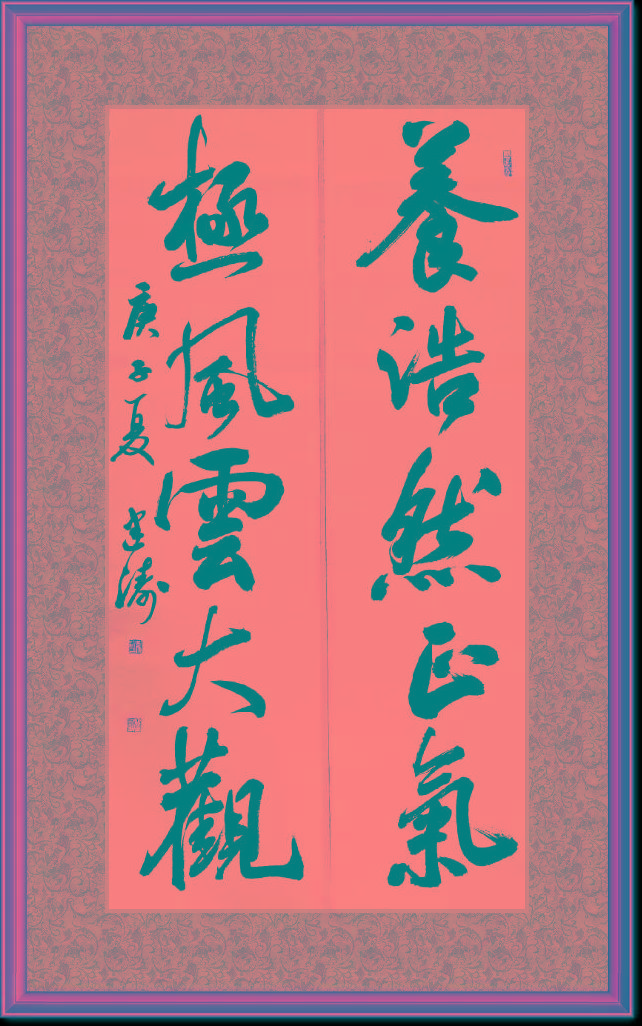 養浩然正氣
極風雲大觀
庚子夏 建濤